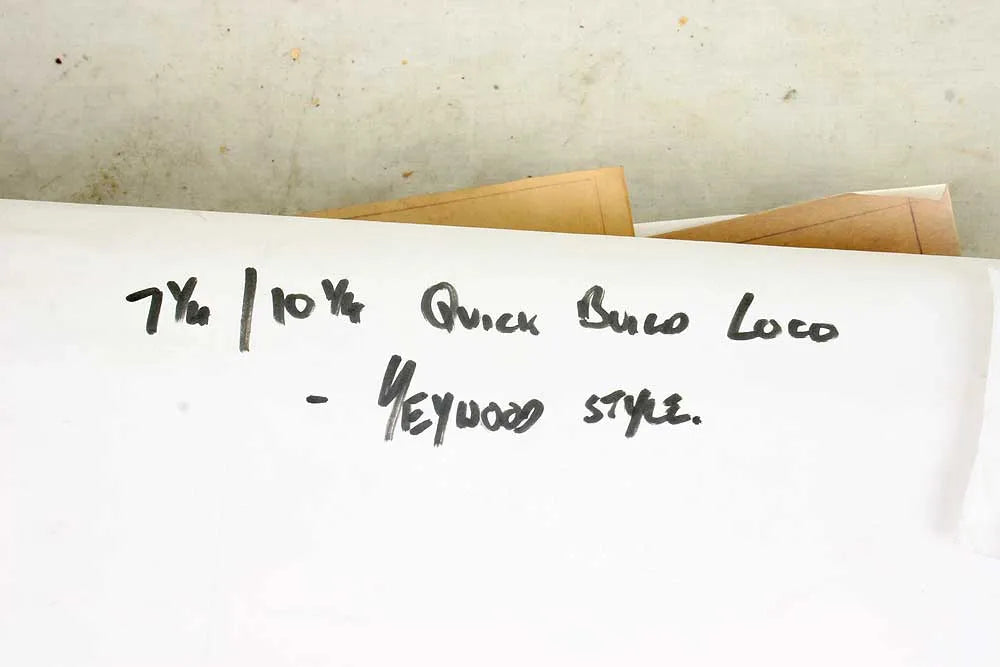 7 1/4 / 10 1/4 Quick Build Loco
- Heywood style.